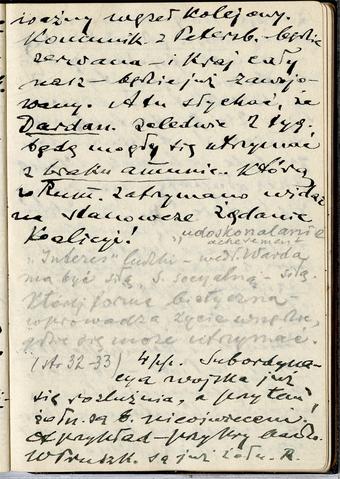 ważny węzeł kolejowy.
Komunik. z Petersb. będzie
zerwana – i Kraj cały
nasz – będzie już zawojo-
wany. A tu słychać, że
Dardan. zaledwie 2 tyg.
będą mogły się utrzymać
z braku amunic. Którą
w Rum. zatrzymano widać
na stanowcze żądanie
Koalicji!
„udoskonalanie
achevement
„Interes" ludzki – wedł. Warda
ma być siłą, s. socyalną – siłą
której forma biologiczna
wprowadza życie wszędzie,
gdzie się może utrzymać.
(str 32-33) 4/4. Subordyna-
cya wojska już
się rozluźnia, a przytem,
żołn. są b. nieoświeceni.
w Prusk. są już żołn. R.